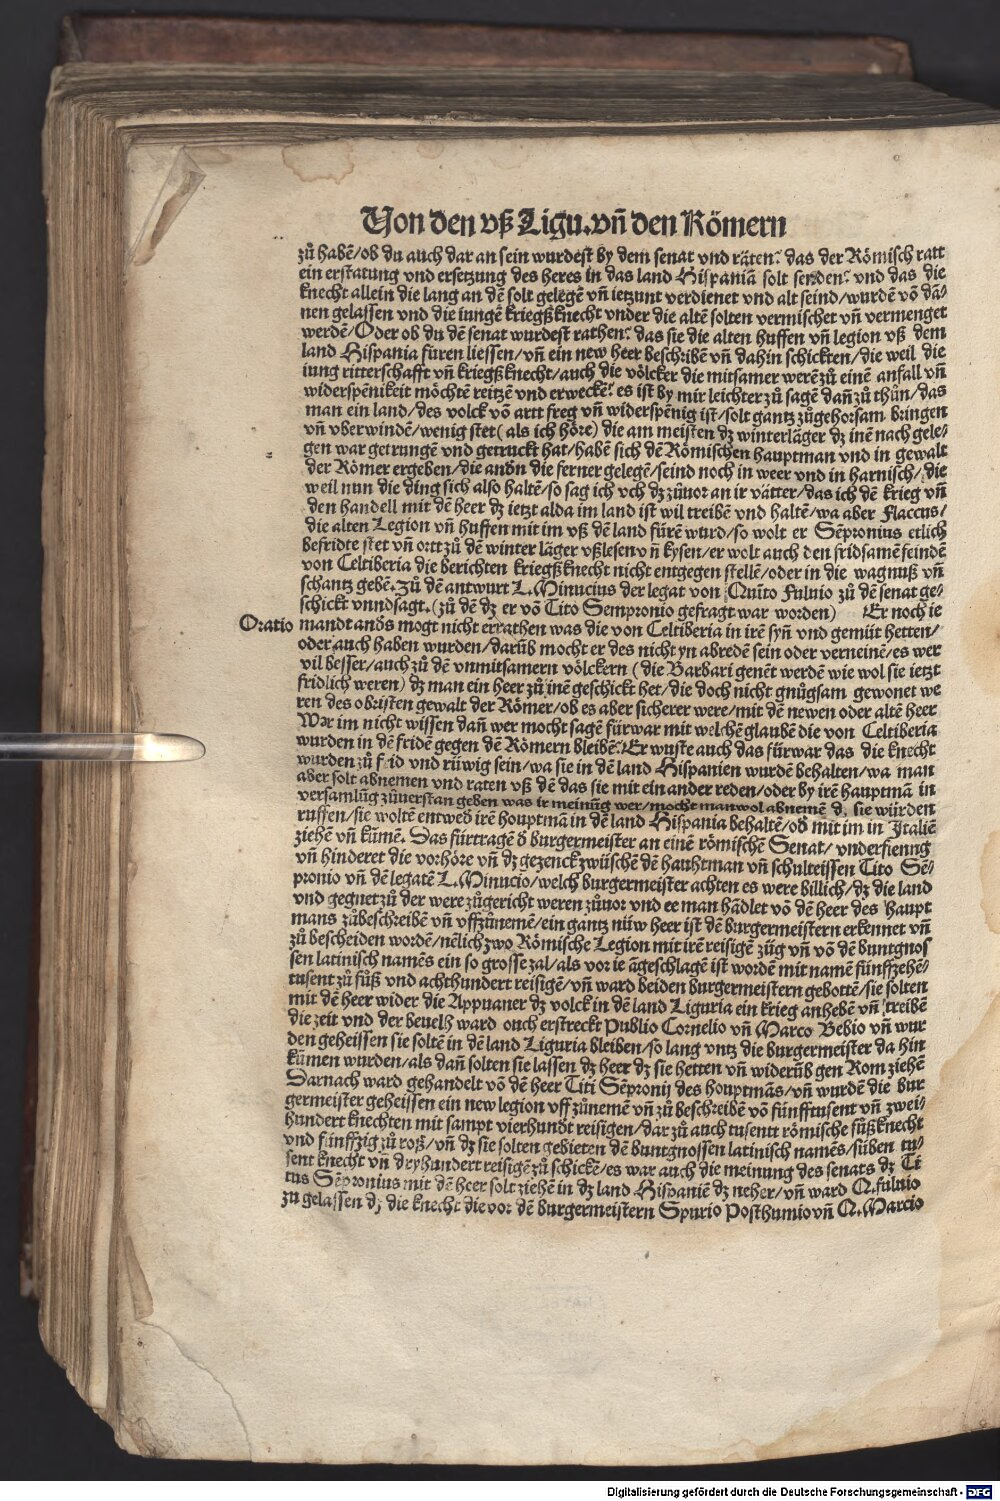 Von den vß Ligu. vñ den Römern
zů habē/ob du auch dar an sein wurdest by dem senat vnd räten? das der Römisch ratt
ein erstatung vnd ersetzung des heres in das land Hispaniā solt senden? vnd das die
knecht allein die lang an dē solt gelegē vñ ietzunt verdienet vnd alt seind/wurdē vō dā⸗
nen gelassen vnd die iungē kriegßknecht vnder die altē solten vermischet vñ vermenget
werdē/Oder ob du dē senat wurdest rathen? das sie die alten huffen vñ legion vß dem
land Hispania füren liessen/vñ ein new heer beschribē vñ dahin schickten/die weil die
iung ritterschafft vñ kriegßknecht/auch die völcker die mitsamer werē zů einē anfall vñ
widerspēnikeit möchtē reitzē vnd erweckē? es ist by mir leichter zů sagē dañ zů thůn/das
man ein land/des volck vō artt freg vñ widerspēnig ist/solt gantz zůgehorsam bringen
vñ vberwindē/wenig stet (als ich höre) die am meisten dz winterläger dz inē nach gele⸗
gen war getrungē vnd getruckt hat/habē sich dē Römischen hauptman vnd in gewalt
der Römer ergeben/die andn̄ die ferner gelegē/seind noch in weer vnd in harnisch/die
weil nun die ding sich also haltē/so sag ich vch dz zůuor an ir vätter/das ich dē krieg vñ
den handell mit dē heer dz ietzt alda im land ist wil treibē vnd haltē/wa aber Flaccus/
die alten Legion vñ huffen mit im vß dē land fürē wurd/so wolt er Sēpronius etlich
befridte stet vñ ortt zů dē winter läger vßlesen vñ kysen/er wolt auch den fridsamē feindē
von Celtiberia die berichten kriegßknecht nicht entgegen stellē/oder in die wagnuß vñ
schantz gebē. Zů dē antwurt L. Minucius der legat von Quīto Fuluio zů dē senat ge⸗
schickt vnnd sagt. (zů dē dz er vō Tito Sempronio gefragt war worden) Er noch ie
Oratio mandt ands mogt nicht errathen was die von Celtiberia in irē syñ vnd gemüt hetten/
oder auch haben wurden/darūb mocht er des nicht yn abredē sein oder verneinē/es wer
vil besser/auch zů dē vnmitsamern völckern (die Barbari genēt werdē wie wol sie ietzt
fridlich weren) dz man ein heer zů inē geschickt het/die doch nicht gnůgsam gewonet we
ren des obristen gewalt der Römer/ob es aber sicherer were/mit dē newen oder altē heer
Wer im nicht wissen dañ wer mocht sagē fürwar mit welchē glaubē die von Celtiberia
wurden in dē fridē gegen dē Römern bleibē? Er wuste auch das fürwar das die knecht
wurden zů frid vnd rüwig sein/wa sie in dē land Hispanien wurdē behalten/wa man
aber solt abnemen vnd raten vß dē das sie mit ein ander reden/oder by irē hauptmā in
versamlūg zůuerstan geben was ir meinūg wer/mocht man wol abnemē dz sie würden
ruffen/sie woltē entwed irē houptmā in dē land Hispania behaltē/od mit im in Italiē
ziehē vñ kūmē. Das fürtragē d burgermeister an einē römischē Senat/ vnderfienng
vñ hinderet die vorhöre vñ dz gezenck zwüschē dē hauhtman vñ schulteissen Tito Sē⸗
pronio vñ dē legatē L. Minucio/welch burgermeister achten es were billich/dz die land
vnd gegnet zů der were zůgericht weren zůuor vnd ee man hādlet vō dē heer des haupt
mans zůbeschreibē vñ vffzůnemē/ein gantz nüw heer ist dē burgermeistern erkennet vñ
zů bescheiden wordē/nēlich zwo Römische Legion mit irē reisigē züg vñ vō dē buntgnos
sen latinisch namēs ein so grosse zal/als vor ie āgeschlagē ist wordē mit namē fünffzehē⸗
tusent zů fůß vnd achthundert reisigē/vñ ward beiden burgermeistern gebottē/sie solten
mit dē heer wider die Appuaner dz volck in dē land Liguria ein krieg anhebē vñ treibē
die zeit vnd der beuelh ward ouch erstreckt Publio Cornelio vñ Marco Bebio vñ wur
den geheissen sie soltē in dē land Liguria bleiben/so lang vntz die burgermeister da hin
kūmen wurden/als dañ solten sie lassen dz heer dz sie hetten vñ widerūb gen Rom ziehē
Darnach ward gehandelt vō dē heer Titi Sēpronij des houptmās/vñ wurdē die bur
germeister geheissen ein new legion vff zůnemē vñ zů beschreibē vō fünfftusent vñ zwei⸗
hundert knechten mit sampt vierhundt reisigen/dar zů auch tusentt römische fůßknecht
vnd fünffzig zů roß/vñ dz sie solten gebieten dē buntgnossen latinisch namēs/siben tu⸗
sent knecht vñ dryhundert reisigē zů schickē/es war auch die meinung des senats dz Ti
tus Sēpronius mit dē heer solt ziehē in dz land Hispaniē dz neher/vñ ward Q. fuluio
zu gelassen dz die knecht die vor dē burgermeistern Spurio Posthumio vñ Q. Marcio
Digitalisierung gefördert durch die Deutsche Forschungsgemeinschaft - DFG